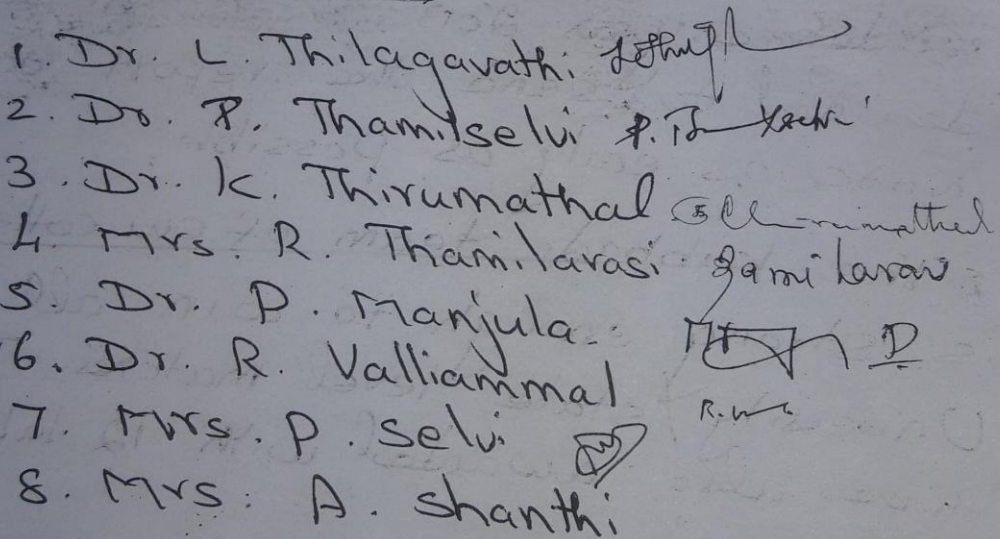 1. Dr. L. Thilagavathi.
2. Dr. P. Thamilselvi
3. Dr. K. Thirumathal
4. Mrs. R. Thamilarasi.
5. Dr. P. Manjula.
6. Dr. R. Valliammal
7. Mrs. P. Selvi
8. Mrs. A. Shanthi